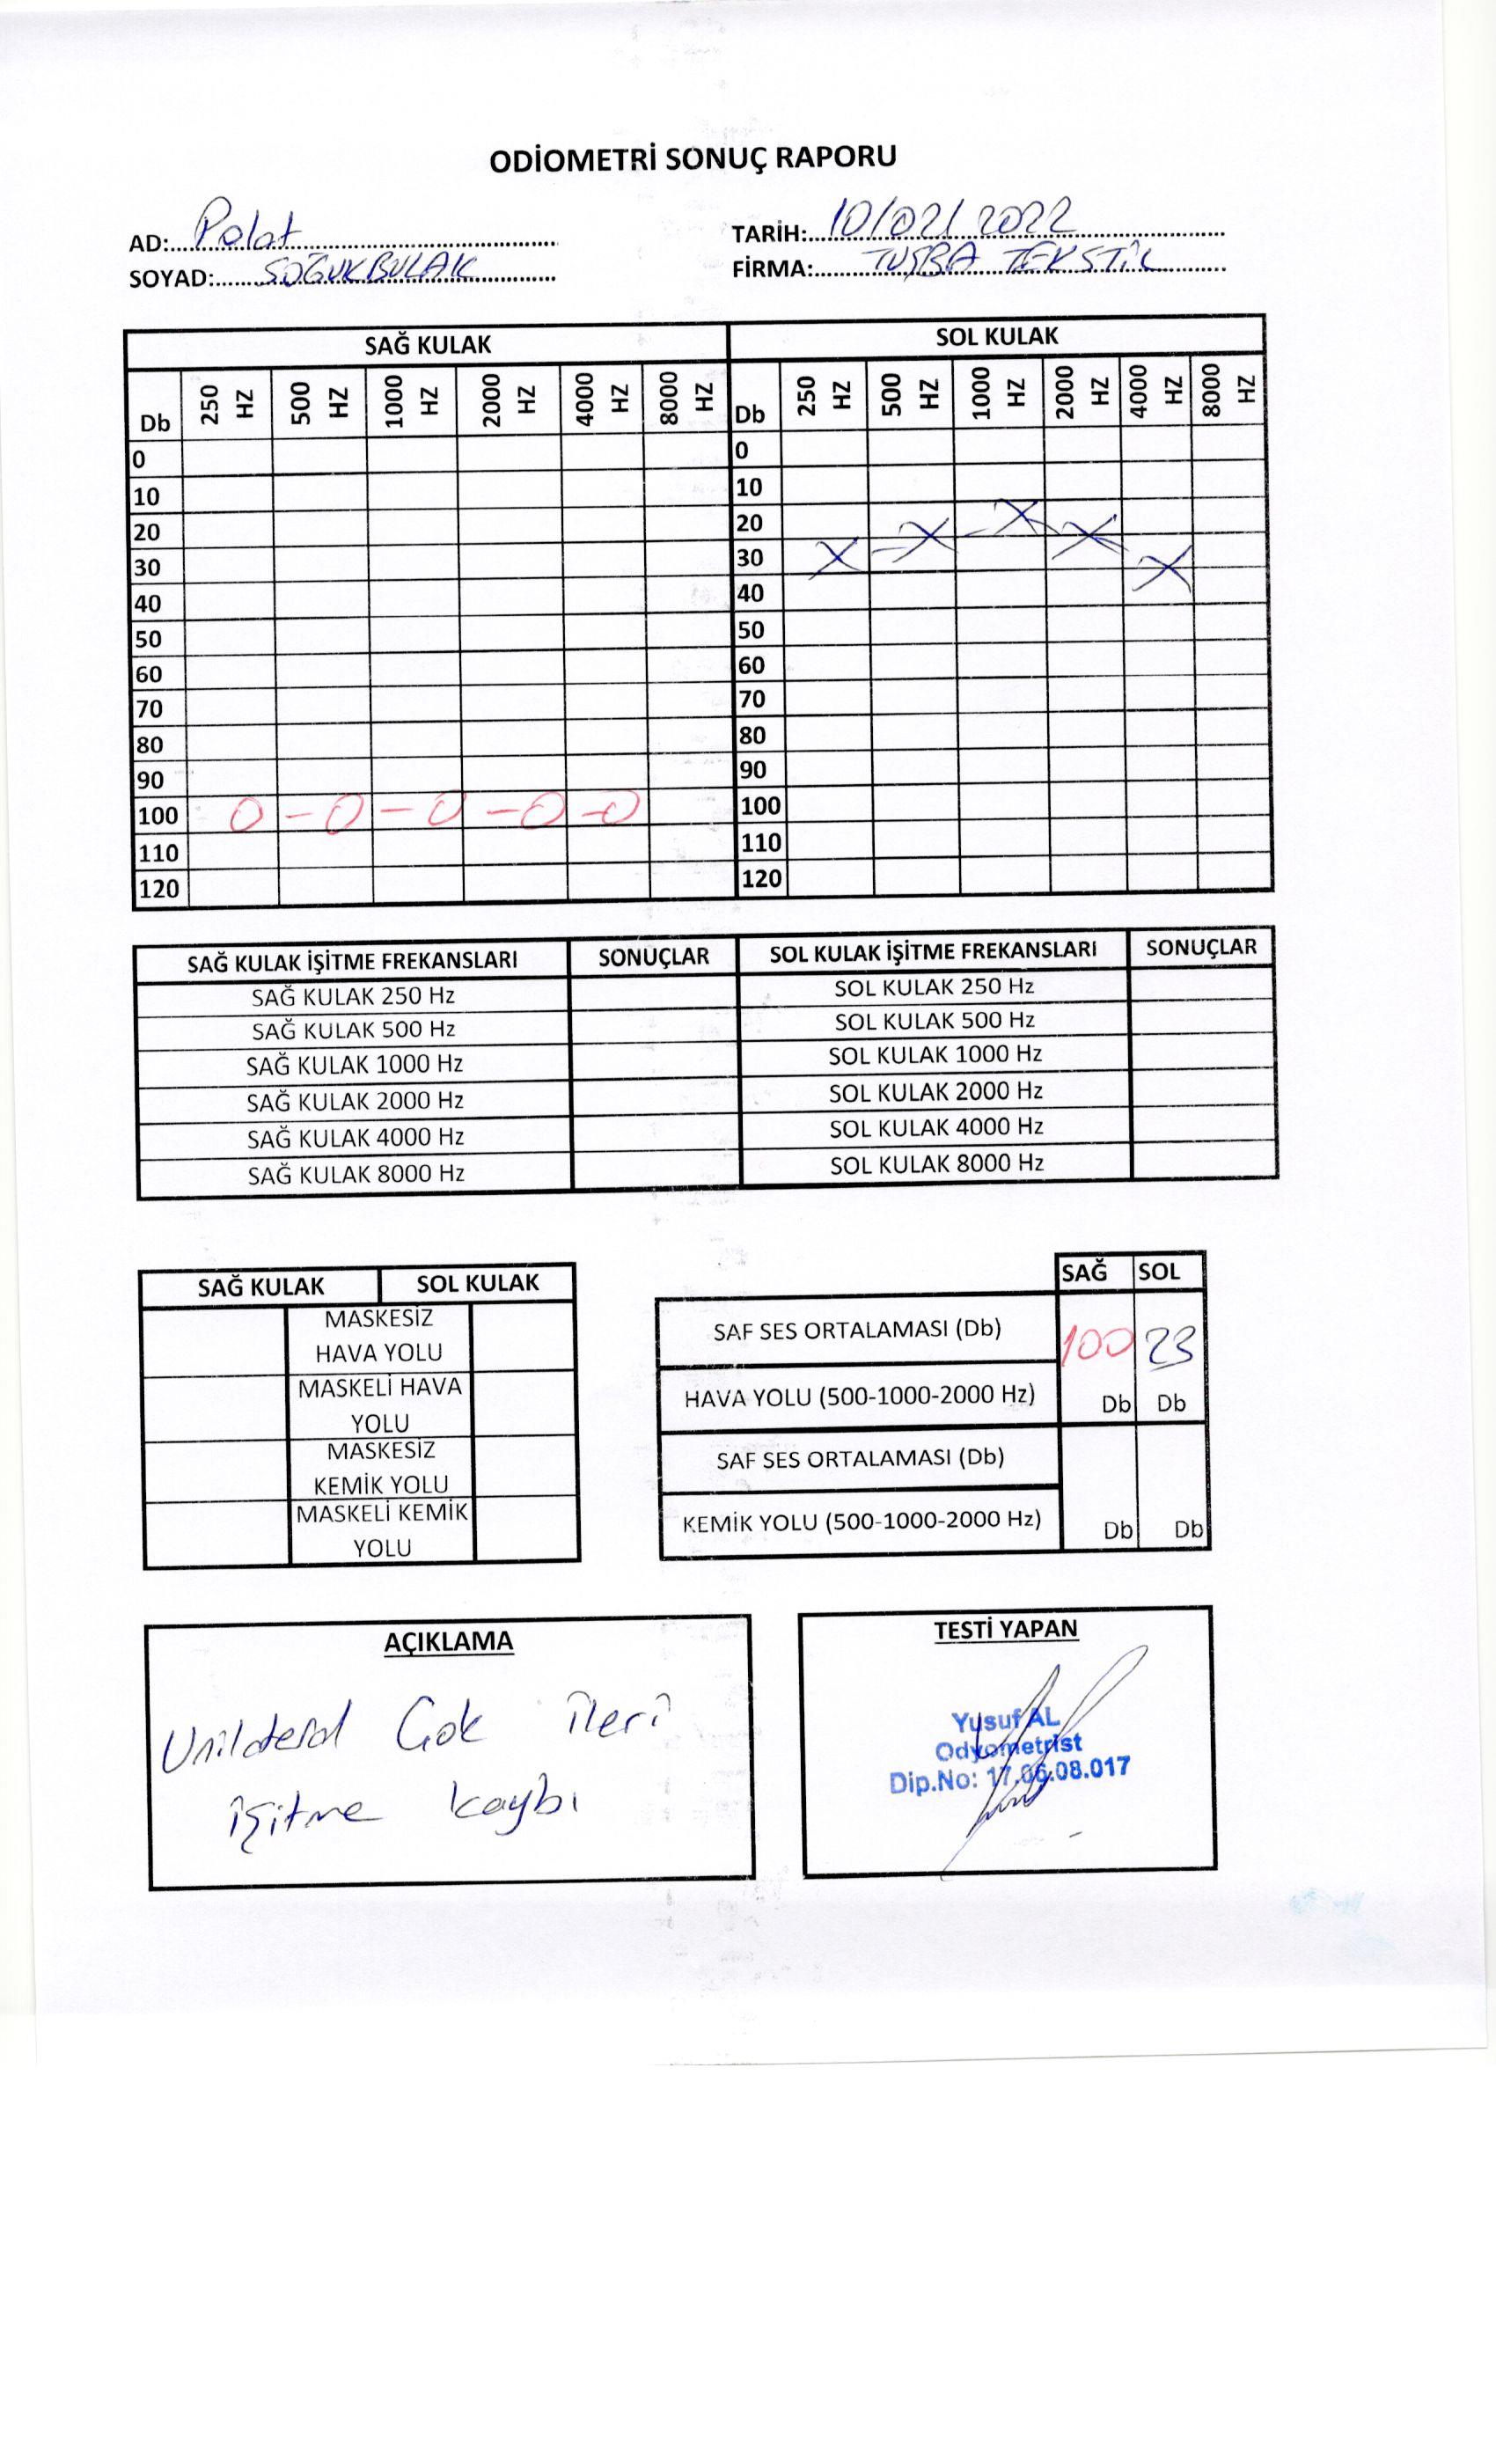 ODİOMETRİ SONUÇ RAPORU
AD:.... Polat TARİH:.... 10/02/2022
SOYAD:.... SOĞUKBULAK FİRMA:.... TUŞBA TEKSTİL
SAĞ KULAK SOL KULAK
Db 250 HZ 500 HZ 1000 HZ 2000 HZ 4000 HZ 8000 HZ Db 250 HZ 500 HZ 1000 HZ 2000 HZ 4000 HZ 8000 HZ
0 0
10 10
20 20 X X
30 30 X X X
40 40
50 50
60 60
70 70
80 80
90 90
100 0 - 0 - 0 - 0 - 0 100
110 110
120 120
SAĞ KULAK İŞİTME FREKANSLARI SONUÇLAR SOL KULAK İŞİTME FREKANSLARI SONUÇLAR
SAĞ KULAK 250 Hz SOL KULAK 250 Hz
SAĞ KULAK 500 Hz SOL KULAK 500 Hz
SAĞ KULAK 1000 Hz SOL KULAK 1000 Hz
SAĞ KULAK 2000 Hz SOL KULAK 2000 Hz
SAĞ KULAK 4000 Hz SOL KULAK 4000 Hz
SAĞ KULAK 8000 Hz SOL KULAK 8000 Hz
SAĞ KULAK SOL KULAK
MASKESİZ
HAVA YOLU
MASKELİ HAVA
YOLU
MASKESİZ
KEMİK YOLU
MASKELİ KEMİK
YOLU
SAĞ SOL
SAF SES ORTALAMASI (Db) 100 23
HAVA YOLU (500-1000-2000 Hz) Db Db
SAF SES ORTALAMASI (Db)
KEMİK YOLU (500-1000-2000 Hz) Db Db
AÇIKLAMA
Unilateral Çok ileri
işitme kaybı
TESTİ YAPAN
Yusuf AL
Odyometrist
Dip.No: 17.06.08.017